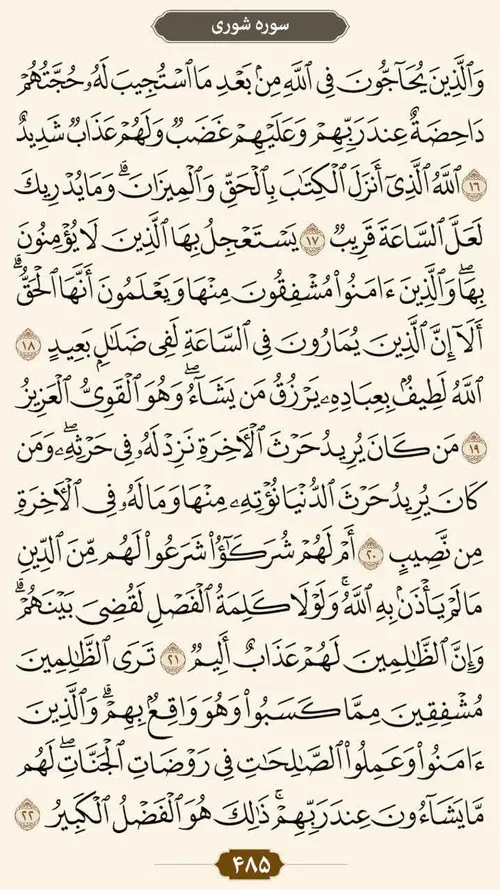 سوره شوری
وَٱلَّذِينَ يُحَآجُّونَ فِى ٱللَّهِ مِنۢ بَعْدِ مَا ٱسْتُجِيبَ لَهُۥ حُجَّتُهُمْ
دَاحِضَةٌ عِندَ رَبِّهِمْ وَعَلَيْهِمْ غَضَبٌ وَلَهُمْ عَذَابٌ شَدِيدٌ
١٦ ٱللَّهُ ٱلَّذِىٓ أَنزَلَ ٱلْكِتَٰبَ بِٱلْحَقِّ وَٱلْمِيزَانَ ۗ وَمَا يُدْرِيكَ
لَعَلَّ ٱلسَّاعَةَ قَرِيبٌ ١٧ يَسْتَعْجِلُ بِهَا ٱلَّذِينَ لَا يُؤْمِنُونَ
بِهَا ۖ وَٱلَّذِينَ ءَامَنُوا۟ مُشْفِقُونَ مِنْهَا وَيَعْلَمُونَ أَنَّهَا ٱلْحَقُّ ۗ
أَلَآ إِنَّ ٱلَّذِينَ يُمَارُونَ فِى ٱلسَّاعَةِ لَفِى ضَلَٰلٍۭ بَعِيدٍ ١٨
ٱللَّهُ لَطِيفٌۢ بِعِبَادِهِۦ يَرْزُقُ مَن يَشَآءُ ۖ وَهُوَ ٱلْقَوِىُّ ٱلْعَزِيزُ
١٩ مَن كَانَ يُرِيدُ حَرْثَ ٱلْءَاخِرَةِ نَزِدْ لَهُۥ فِى حَرْثِهِۦ ۖ وَمَن
كَانَ يُرِيدُ حَرْثَ ٱلدُّنْيَا نُؤْتِهِۦ مِنْهَا وَمَا لَهُۥ فِى ٱلْءَاخِرَةِ
مِن نَّصِيبٍ ٢٠ أَمْ لَهُمْ شُرَكَٰٓؤُا۟ شَرَعُوا۟ لَهُم مِّنَ ٱلدِّينِ
مَا لَمْ يَأْذَنۢ بِهِ ٱللَّهُ ۚ وَلَوْلَا كَلِمَةُ ٱلْفَصْلِ لَقُضِىَ بَيْنَهُمْ ۗ
وَإِنَّ ٱلظَّٰلِمِينَ لَهُمْ عَذَابٌ أَلِيمٌ ٢١ تَرَى ٱلظَّٰلِمِينَ
مُشْفِقِينَ مِمَّا كَسَبُوا۟ وَهُوَ وَاقِعٌۢ بِهِمْ ۗ وَٱلَّذِينَ
ءَامَنُوا۟ وَعَمِلُوا۟ ٱلصَّٰلِحَٰتِ فِى رَوْضَاتِ ٱلْجَنَّاتِ ۖ لَهُم
مَّا يَشَآءُونَ عِندَ رَبِّهِمْ ۚ ذَٰلِكَ هُوَ ٱلْفَضْلُ ٱلْكَبِيرُ ٢٢
۴۸۵